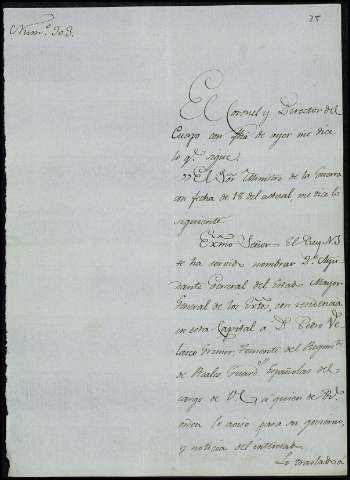 25
Num.º 303.
El Coronel y Director del
Cuerpo con fha de ayer me dice
lo q.e sigue
"El Sor Ministro de la Guerra
con fecha de 18 del actual, me dice lo
siguiente.
Exmo Señor = El Rey N.S.
se ha servido nombrar 2.º Ayu-
dante General del Estado Mayor
General de los Extos, con residencia
en esta Capital a D.n Pedro Ve
lasco Primer Teniente del Regim.to
de Reales Guard.s Españolas del
cargo de V.E. a quien de Rl
orden lo aviso para su gobierno,
y noticia del interesado.
Lo traslado a